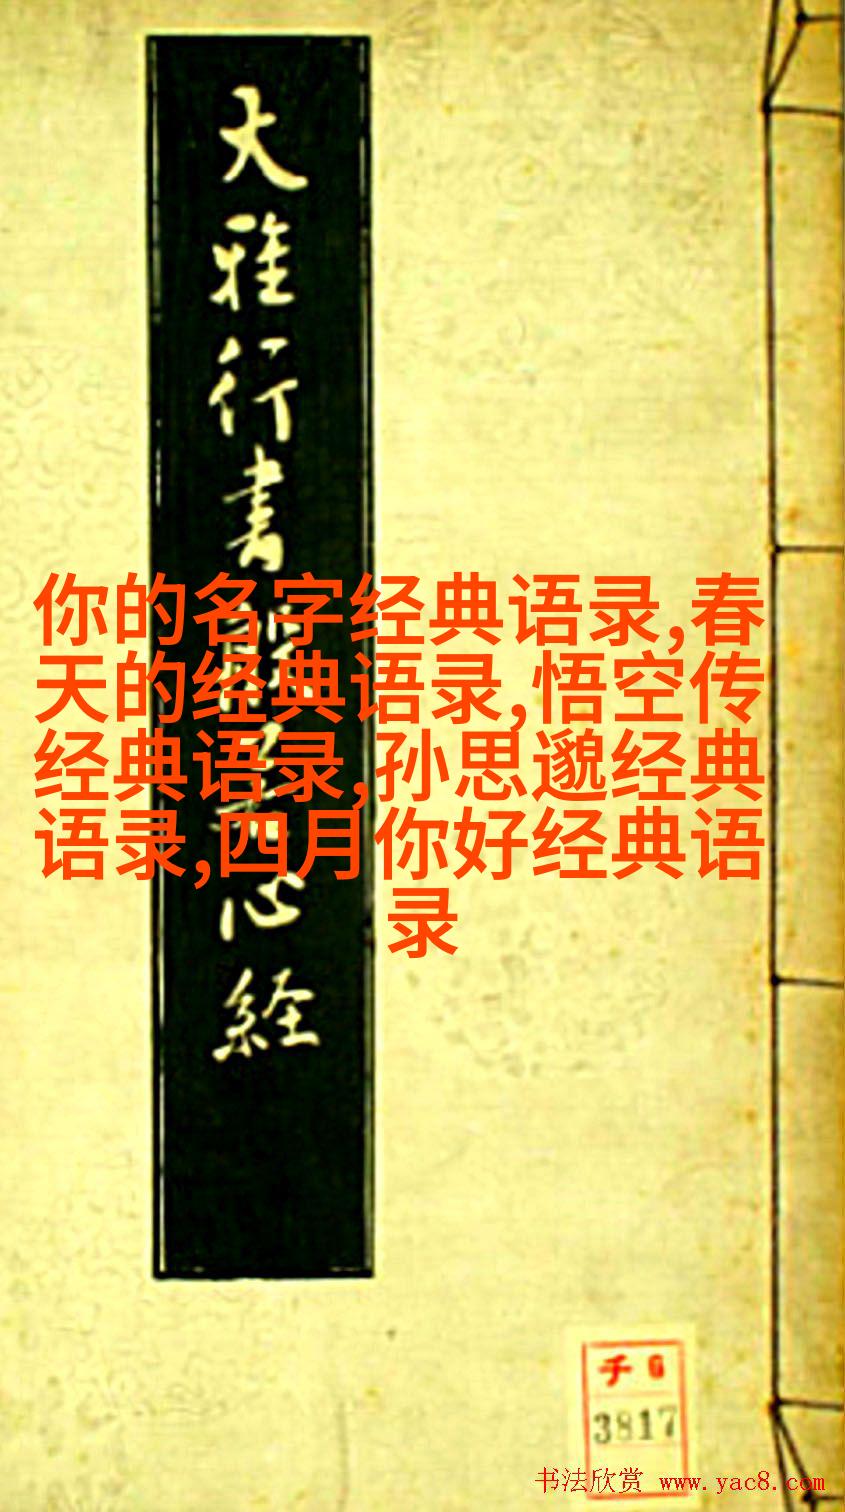 大雅行書
心経
你的名字经典语录,春
天的经典语录,悟空传
经典语录,孙思邈经典
语录,四月你好经典语
录
千 G
3817
书法欣赏 www.yac8.com